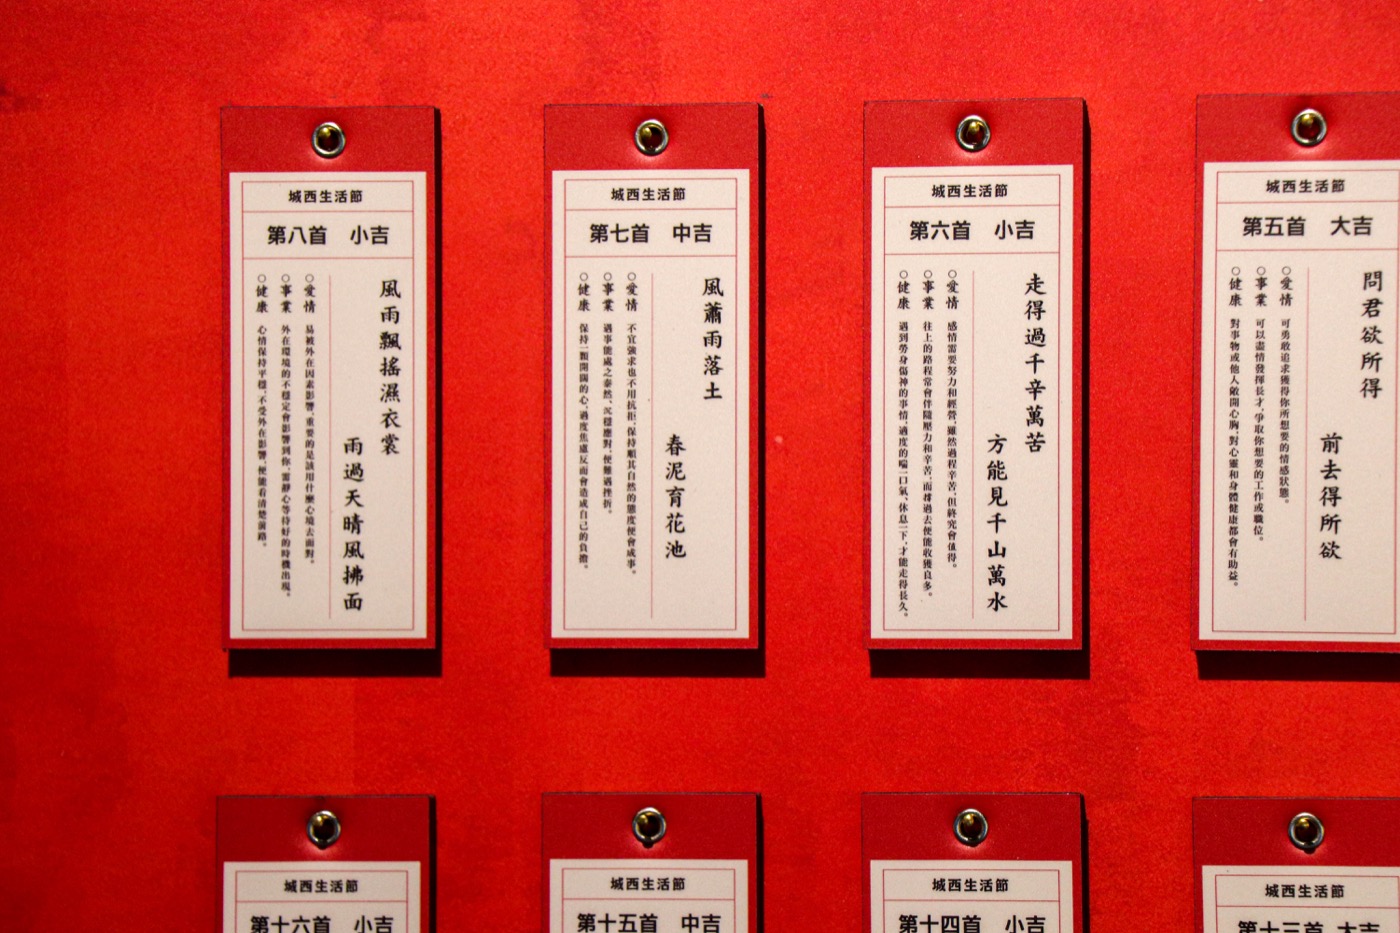 城西生活節
第八首 小吉
風雨飄搖濕衣裳
雨過天晴風拂面
○愛情 易被外在因素影響,重要的是該用什麼心境去面對。
○事業 外在環境的不穩定會影響到你,需靜心等待好的時機出現。
○健康 心情保持平穩,不受外在影響,便能看清楚前路。
城西生活節
第七首 中吉
風蕭雨落土
春泥育花池
○愛情 不宜強求也不用抗拒,保持順其自然的態度便會成事。
○事業 遇事能處之泰然、沉穩應對,便難遇挫折。
○健康 保持一顆開闊的心,過度焦慮反而會造成自己的負擔。
城西生活節
第六首 小吉
走得過千辛萬苦
方能見千山萬水
○愛情 感情需要努力和經營,雖然過程辛苦,但終究會值得。
○事業 往上的路程常會伴隨壓力和辛苦,而撐過去便能收獲良多。
○健康 遇到勞身傷神的事情,適度的喘一口氣、休息一下,才能走得長久。
城西生活節
第五首 大吉
問君欲所得
前去得所欲
○愛情 可勇敢追求獲得你所想要的情感狀態。
○事業 可以盡情發揮長才,爭取你想要的工作或職位。
○健康 對事物或他人敞開心胸,對心靈和身體健康都會有助益。
城西生活節
第十六首 小吉
城西生活節
第十五首 中吉
城西生活節
第十四首 小吉
城西生活節
第十三首 大吉